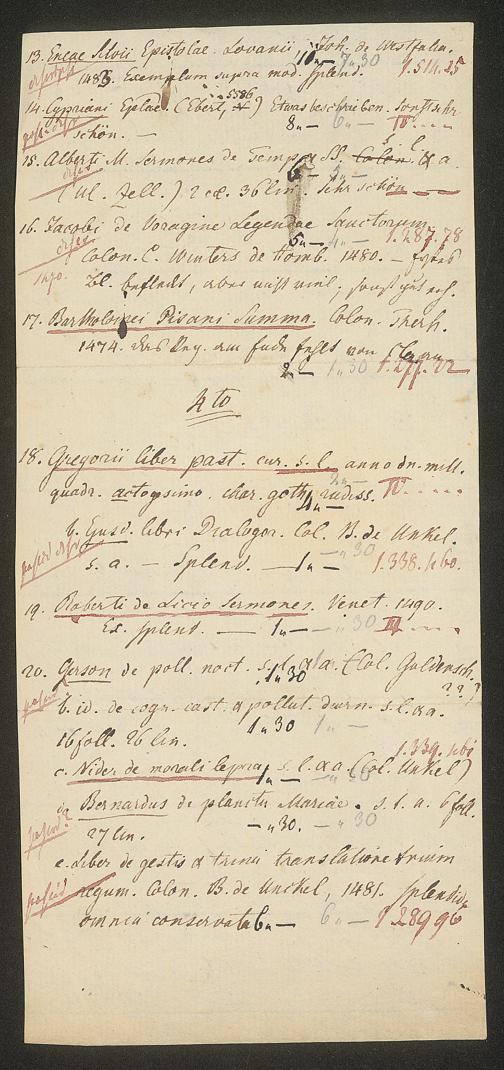 13. Eneae Silvii Epistolae. Lovanii, Joh. de Westfalia.
1483. Exemplum supra mod. splend. 10„— 7„30 1.511.25
14. Cypriani Eplae (Ebert, 5586) Etwas beschrieben. Sonst sehr
schön. — 8„— 6„— IV
15. Alberti M. Sermones de Temp. & SS. Colon. s. l. & a.
(Ul. Zell.) 2 col. 36 lin. Sehr schön
16. Jacobi de Voragine Legendae Sanctorum
5„— 4„— 1.287.78
Colon. C. Winters de Homb. 1480. —
Bl. befleckt, aber nicht viel; sonst gut erh.
17. Bartholomei Pisani Summa. Colon. Therh.
1474. das Reg. am Ende fehlt von
2„— 1„30 1.277.22
4to
18. Gregorii liber past. cur. s. l. anno dn. mill.
quadr. actogesimo. char. goth. rudiss. 4„— IV
b. Ejusd. libri Dialogor. Col. B. de Unkel.
s. a. — Splend. — 1„— —„30 1.338.1/60.
19. Roberti de Licio Sermones. Venet. 1490.
Ex. splend. — 1„— —„30 III
20. Gerson de poll. noct. s. l. & a. (Col. Goldensch.
??)
1„30
b. id. de cogn. cast. & pollut. diurn. s. l. & a.
1„30 1„—
16 foll. 26 lin.
1.339.
c. Nider de morali lepra, s. l. & a. (Col. Unkel)
1„—
d. Bernardus de planctu Mariae. s. l. a. 6 foll.
27 lin. —„30. —„30
e. Liber de gestis & trina translatione trium
regum. Colon. B. de Unckel, 1481. Splendide
omnia conservata 6„— 6„— 1.289.96